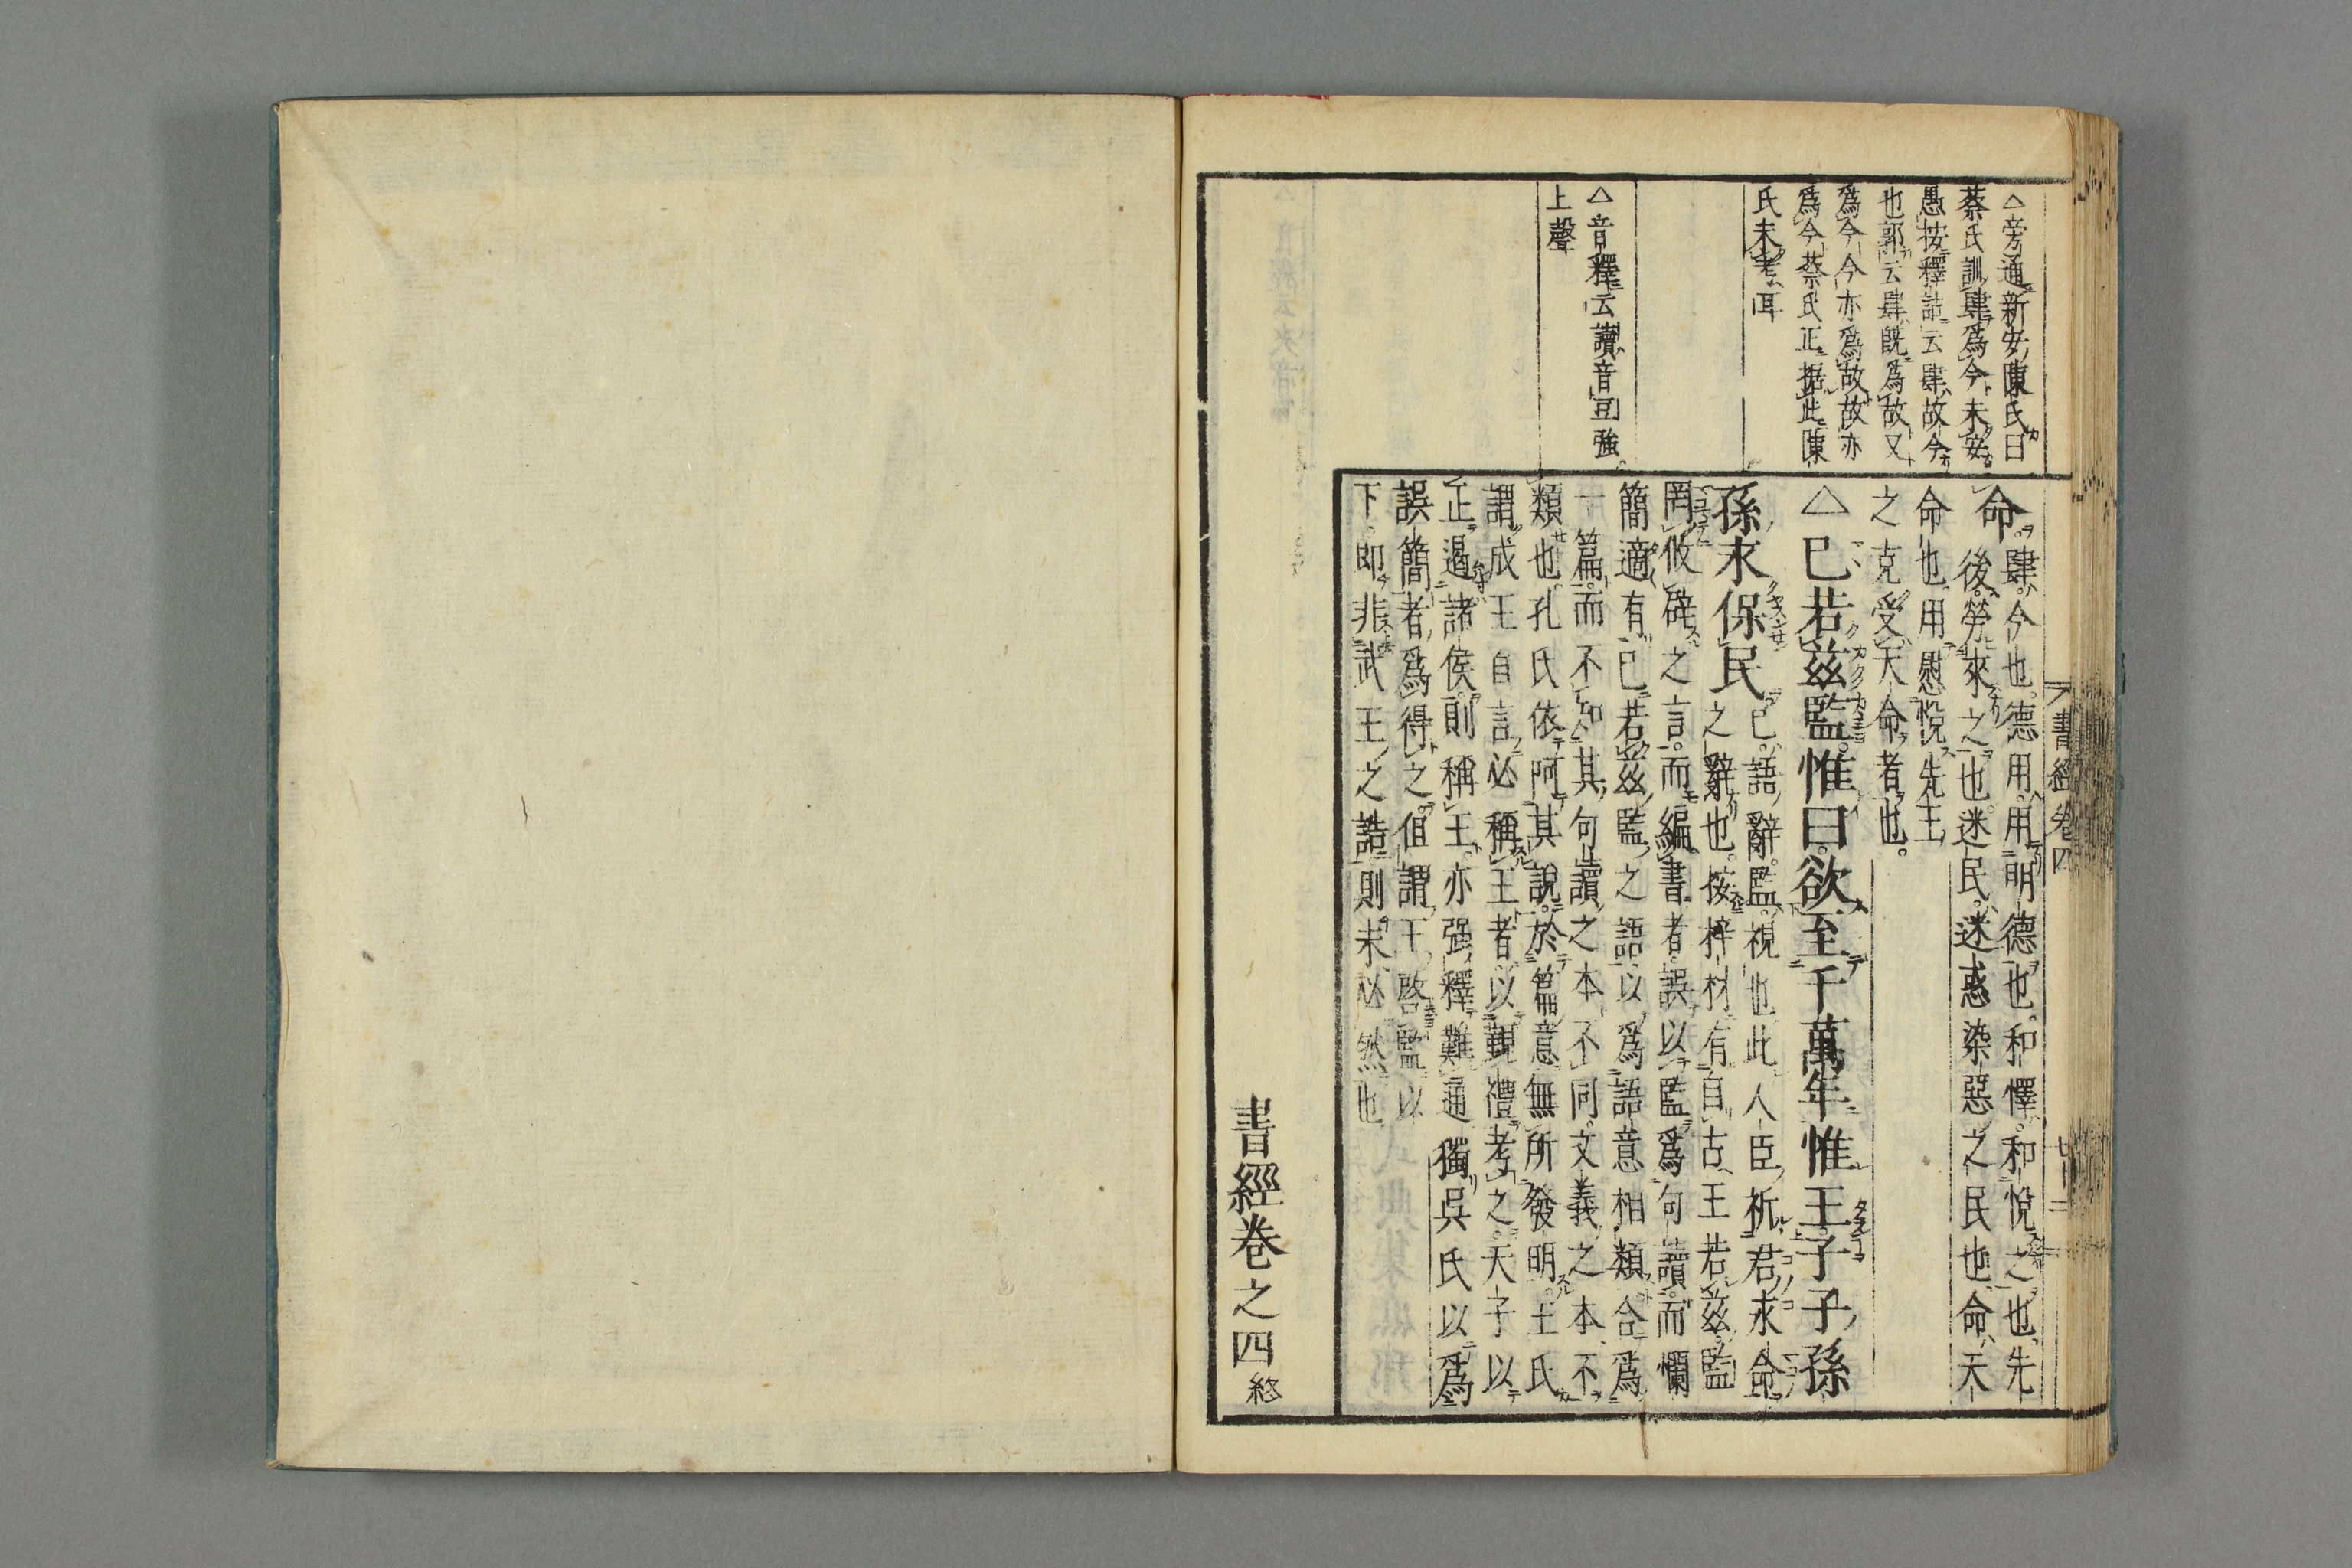 △旁通新安陳氏曰
蔡氏訓肆爲今未安
愚按釋詁云肆故今
也郭云肆既爲故又
爲今今亦爲故故亦
爲今蔡氏正據此陳
氏未考耳
△音釋云讀音豆強
上聲
命肆今也德用用明德也和懌和悅之也先
後勞來之也迷民迷惑染惡之民也命天
命也用慰悅先王
之克受天命者也
△已若茲監惟曰欲至于萬年惟王子子孫
孫永保民已語辭監視也此人臣祈君永命
之辭也按梓材有自古王若茲監
罔攸辟之言而編書者誤以監爲句讀而爛
簡適有已若茲監之語以爲語意相類合爲
一篇而不知其句讀之本不同文義之本不
類也孔氏依阿其說於篇意無所發明王氏
謂成王自言必稱王者以覲禮考之天子以
正遏諸侯則稱王亦强釋難通獨吳氏以爲
誤簡者爲得之但謂王啓監以
下即非武王之誥則未必然也
書經卷之四終
書經卷四
七十二